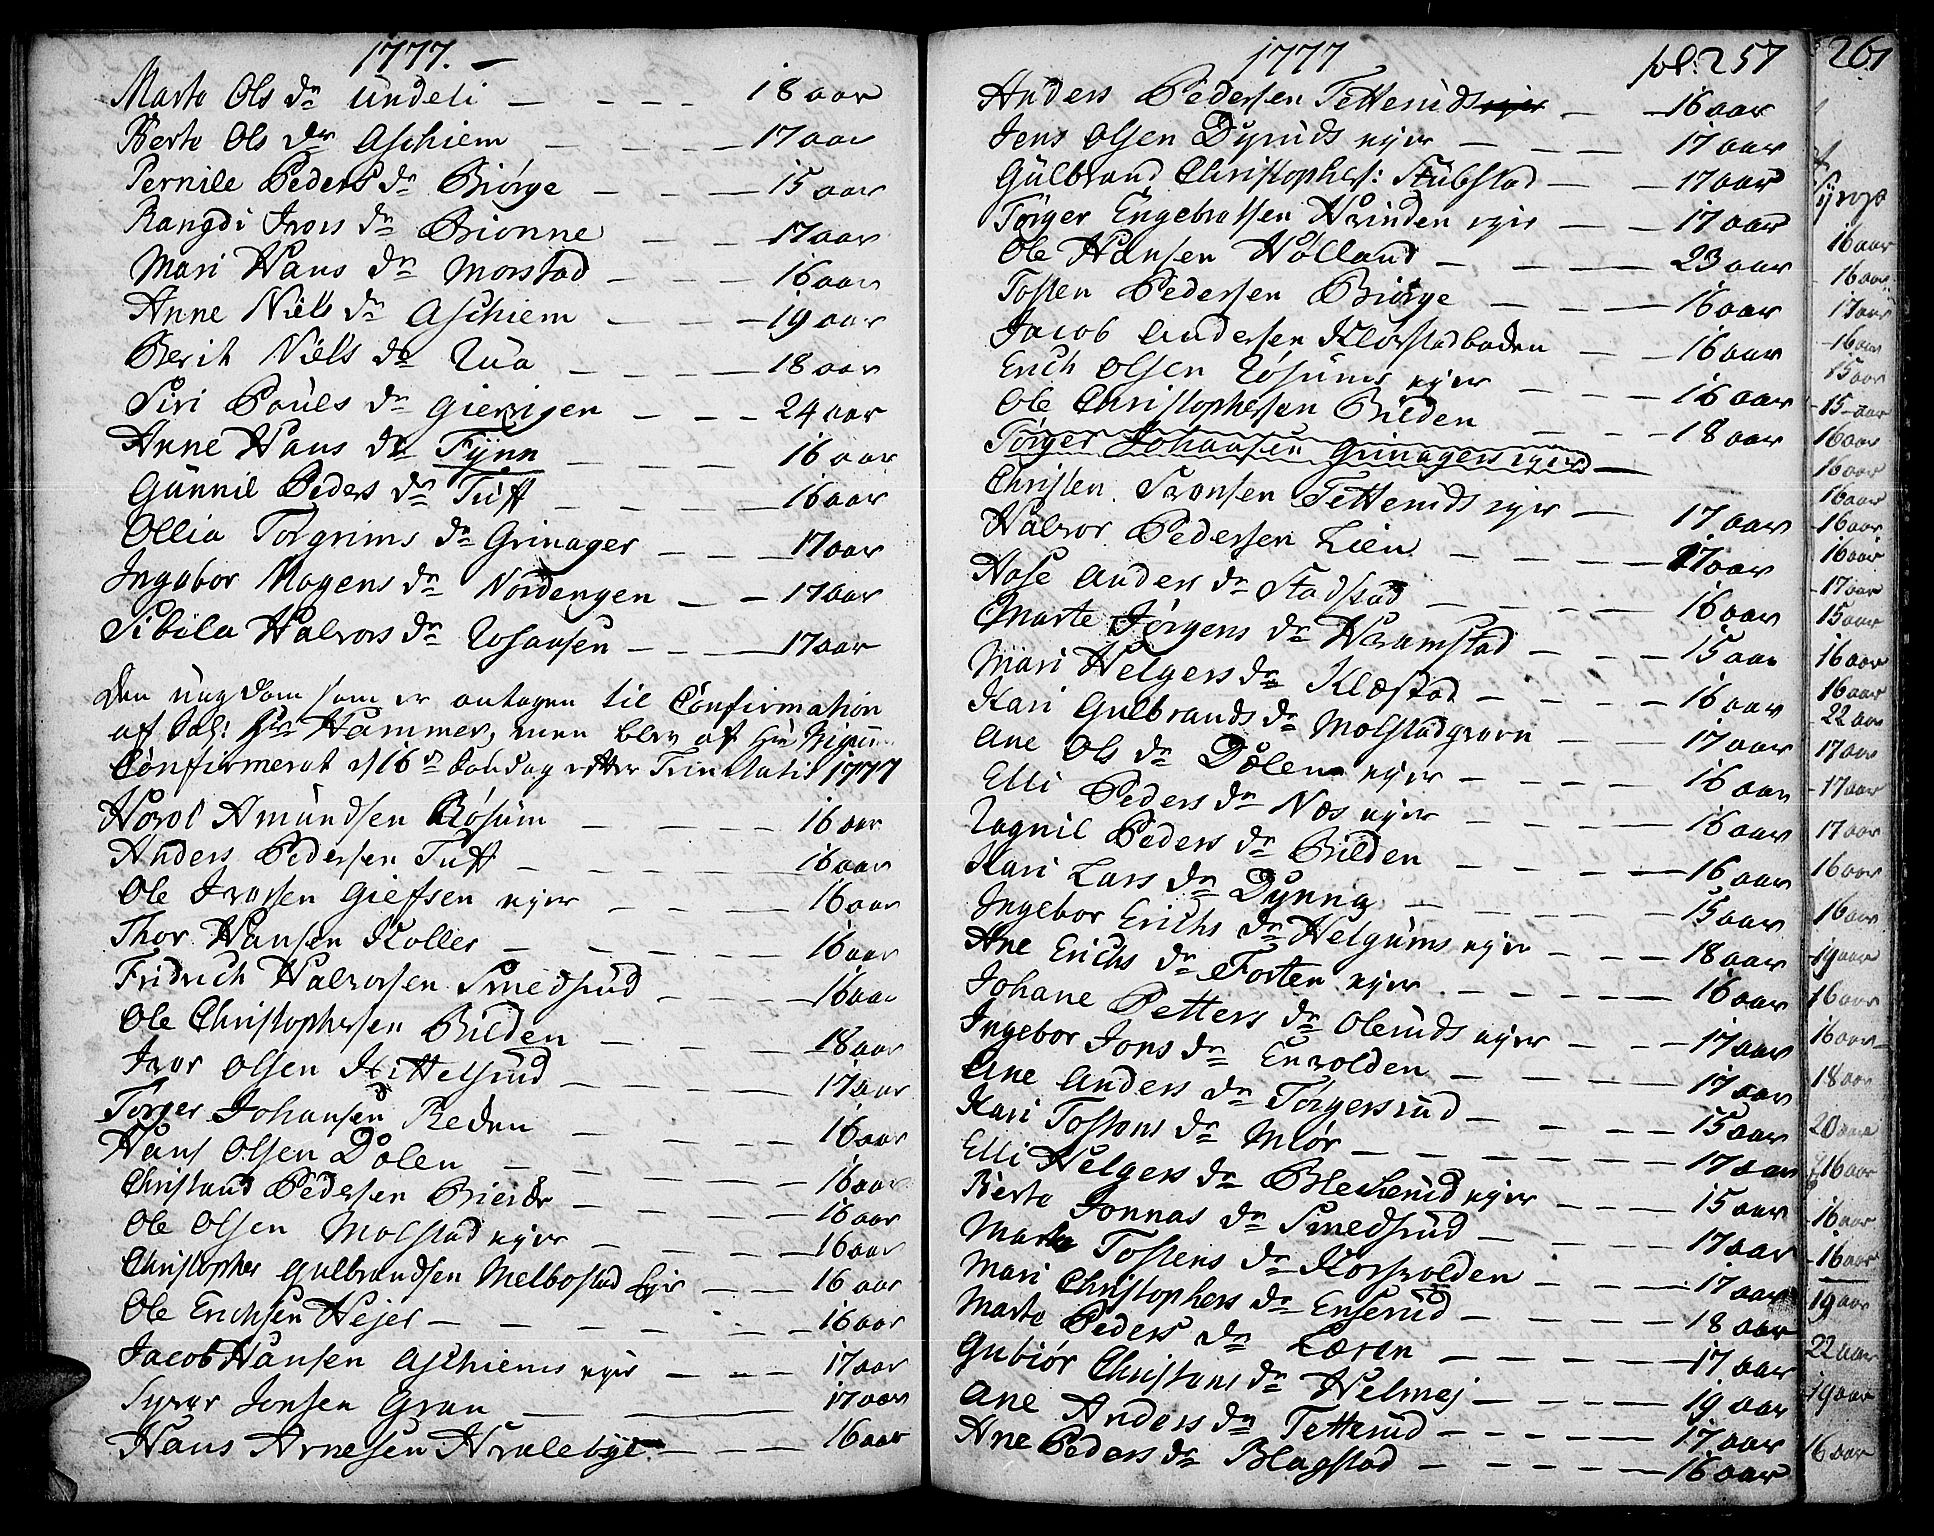 1777.
Marte Ols dr Undeli - - - - 18 aar
Berte Ols dr Aschiem - - - 17 aar
Pernile Peders dr Biørge - - 15 aar
Rangdi Ivers dr Bionne - - 17 aar
Mari Hans dr Morstad - - - 16 aar
Anne Niels dr Aschiem - - 19 aar
Berit Niels dr Rua - - - 18 aar
Siri Pouls dr - - - 24 aar
Anne Hans dr Fÿnn - - - 16 aar
Gunnil Peders dr Tuft - - - 16 aar
Ollia Torgrims dr Grinager - - 17 aar
Ingebor Mogens dr Nordengen - - 17 aar
Sibila Halvors dr Rosansen - - - 17 aar
Den ungdom som er antagen til Confirmation
af Sal: Hr Hammer, men blev af Hr
Confirmeret d 16de Søndag efter Trinitatis 1777
Amundsen Røsum - - - 16 aar
Anders Pedersen Tuft - - - - 16 aar
Ole Iversen Giefsen eyer - - - 16 aar
Thor Hansen Koller - - - - 16 aar
Fridrich Halvorsen Smedsrud - - - 16 aar
Ole Christophersen Bilden - - - 18 aar
Iver Olsen Kittelsrud - - - 17 aar
Torger Johansen Reden - - - 16 aar
Hans Olsen Dolen - - - - 16 aar
Pedersen - - - - 16 aar
Ole Olsen Molstad eyer - - - 16 aar
Christopher Gulbrandsen Melbostad Eyer - - - 16 aar
Ole Erichsen Hejer - - - - - 16 aar
Jacob Hansen Aschiems eyer - - - 17 aar
Syver Jonsen Gran - - 17 aar
Hans Arnesen Hvalebye - - - 16 aar
1777 fol: 257
Anders Pedersen Tetteruds eyer - - 16 aar
Jens Olsen Dyruds eyer - - - - 17 aar
Gulbrand Christophers: Stubstad - - 17 aar
Torger Engebretsen Hvinden eyer - - 17 aar
Ole Hansen Holland - - - 23 aar
Tosten Pedersen Biørge - - - 16 aar
Jacob Andersen Klorstadbaden - - 16 aar
Erich Olsen Rosums eyer - - - 16 aar
Ole Christophersen Bilden - - - 18 aar
Torger Johansen Grinagers eyer -
Christen Ivensen Tetteruds eyer - - 17 aar
Halvor Pedersen Lien - - - - 17 aar
Anders dr Stadstad - - - - 16 aar
Marte Jørgens dr Hvamstad - - - 15 aar
Mari Helgers dr Klæstad - - - - 16 aar
Kari Gulbrands dr Molstadgvern - - 17 aar
Ane Ols dr Dælen eyer - - - - 16 aar
Elli Peders dr Næs eyer - - - - 16 aar
Ragnil Peders dr Bilden - - - - 16 aar
Kari Lars dr Dynna - - - - 15 aar
Ingebor Erichs dr Helgums eyer - - - 18 aar
Ane Erichs dr Forten eyer - - - - 16 aar
Johane Petters dr Oleruds eyer - - - 17 aar
Ingebor Jons dr Envolden - - - - 17 aar
Ane Anders dr Torgersrud - - - - 15 aar
Kari Tostens dr Mior - - - - - 17 aar
Elli Helgers dr Blekerud eyer - - - 15 aar
Berte Jonnas dr Smedsrud - - - - 17 aar
Marte Tostens dr Korsvolden - - - - 17 aar
Mari Christophers dr Enserud - - - - 18 aar
Marte Peders dr Læren - - - - 17 aar
Gubiør Christens dr Helmej - - - - 19 aar
Ane Anders dr Tetterud - - - - 17 aar
Ane Peders dr Blagstad - - - - 16 aar
261
16 aar
16 aar
17 aar
16 aar
15 aar
15 aar
16 aar
16 aar
16 aar
16 aar
16 aar
17 aar
15 aar
16 aar
16 aar
22 aar
17 aar
17 aar
17 aar
16 aar
16 aar
19 aar
16 aar
16 aar
18 aar
20 aar
16 aar
16 aar
16 aar
19 aar
22 aar
19 aar
16 aar